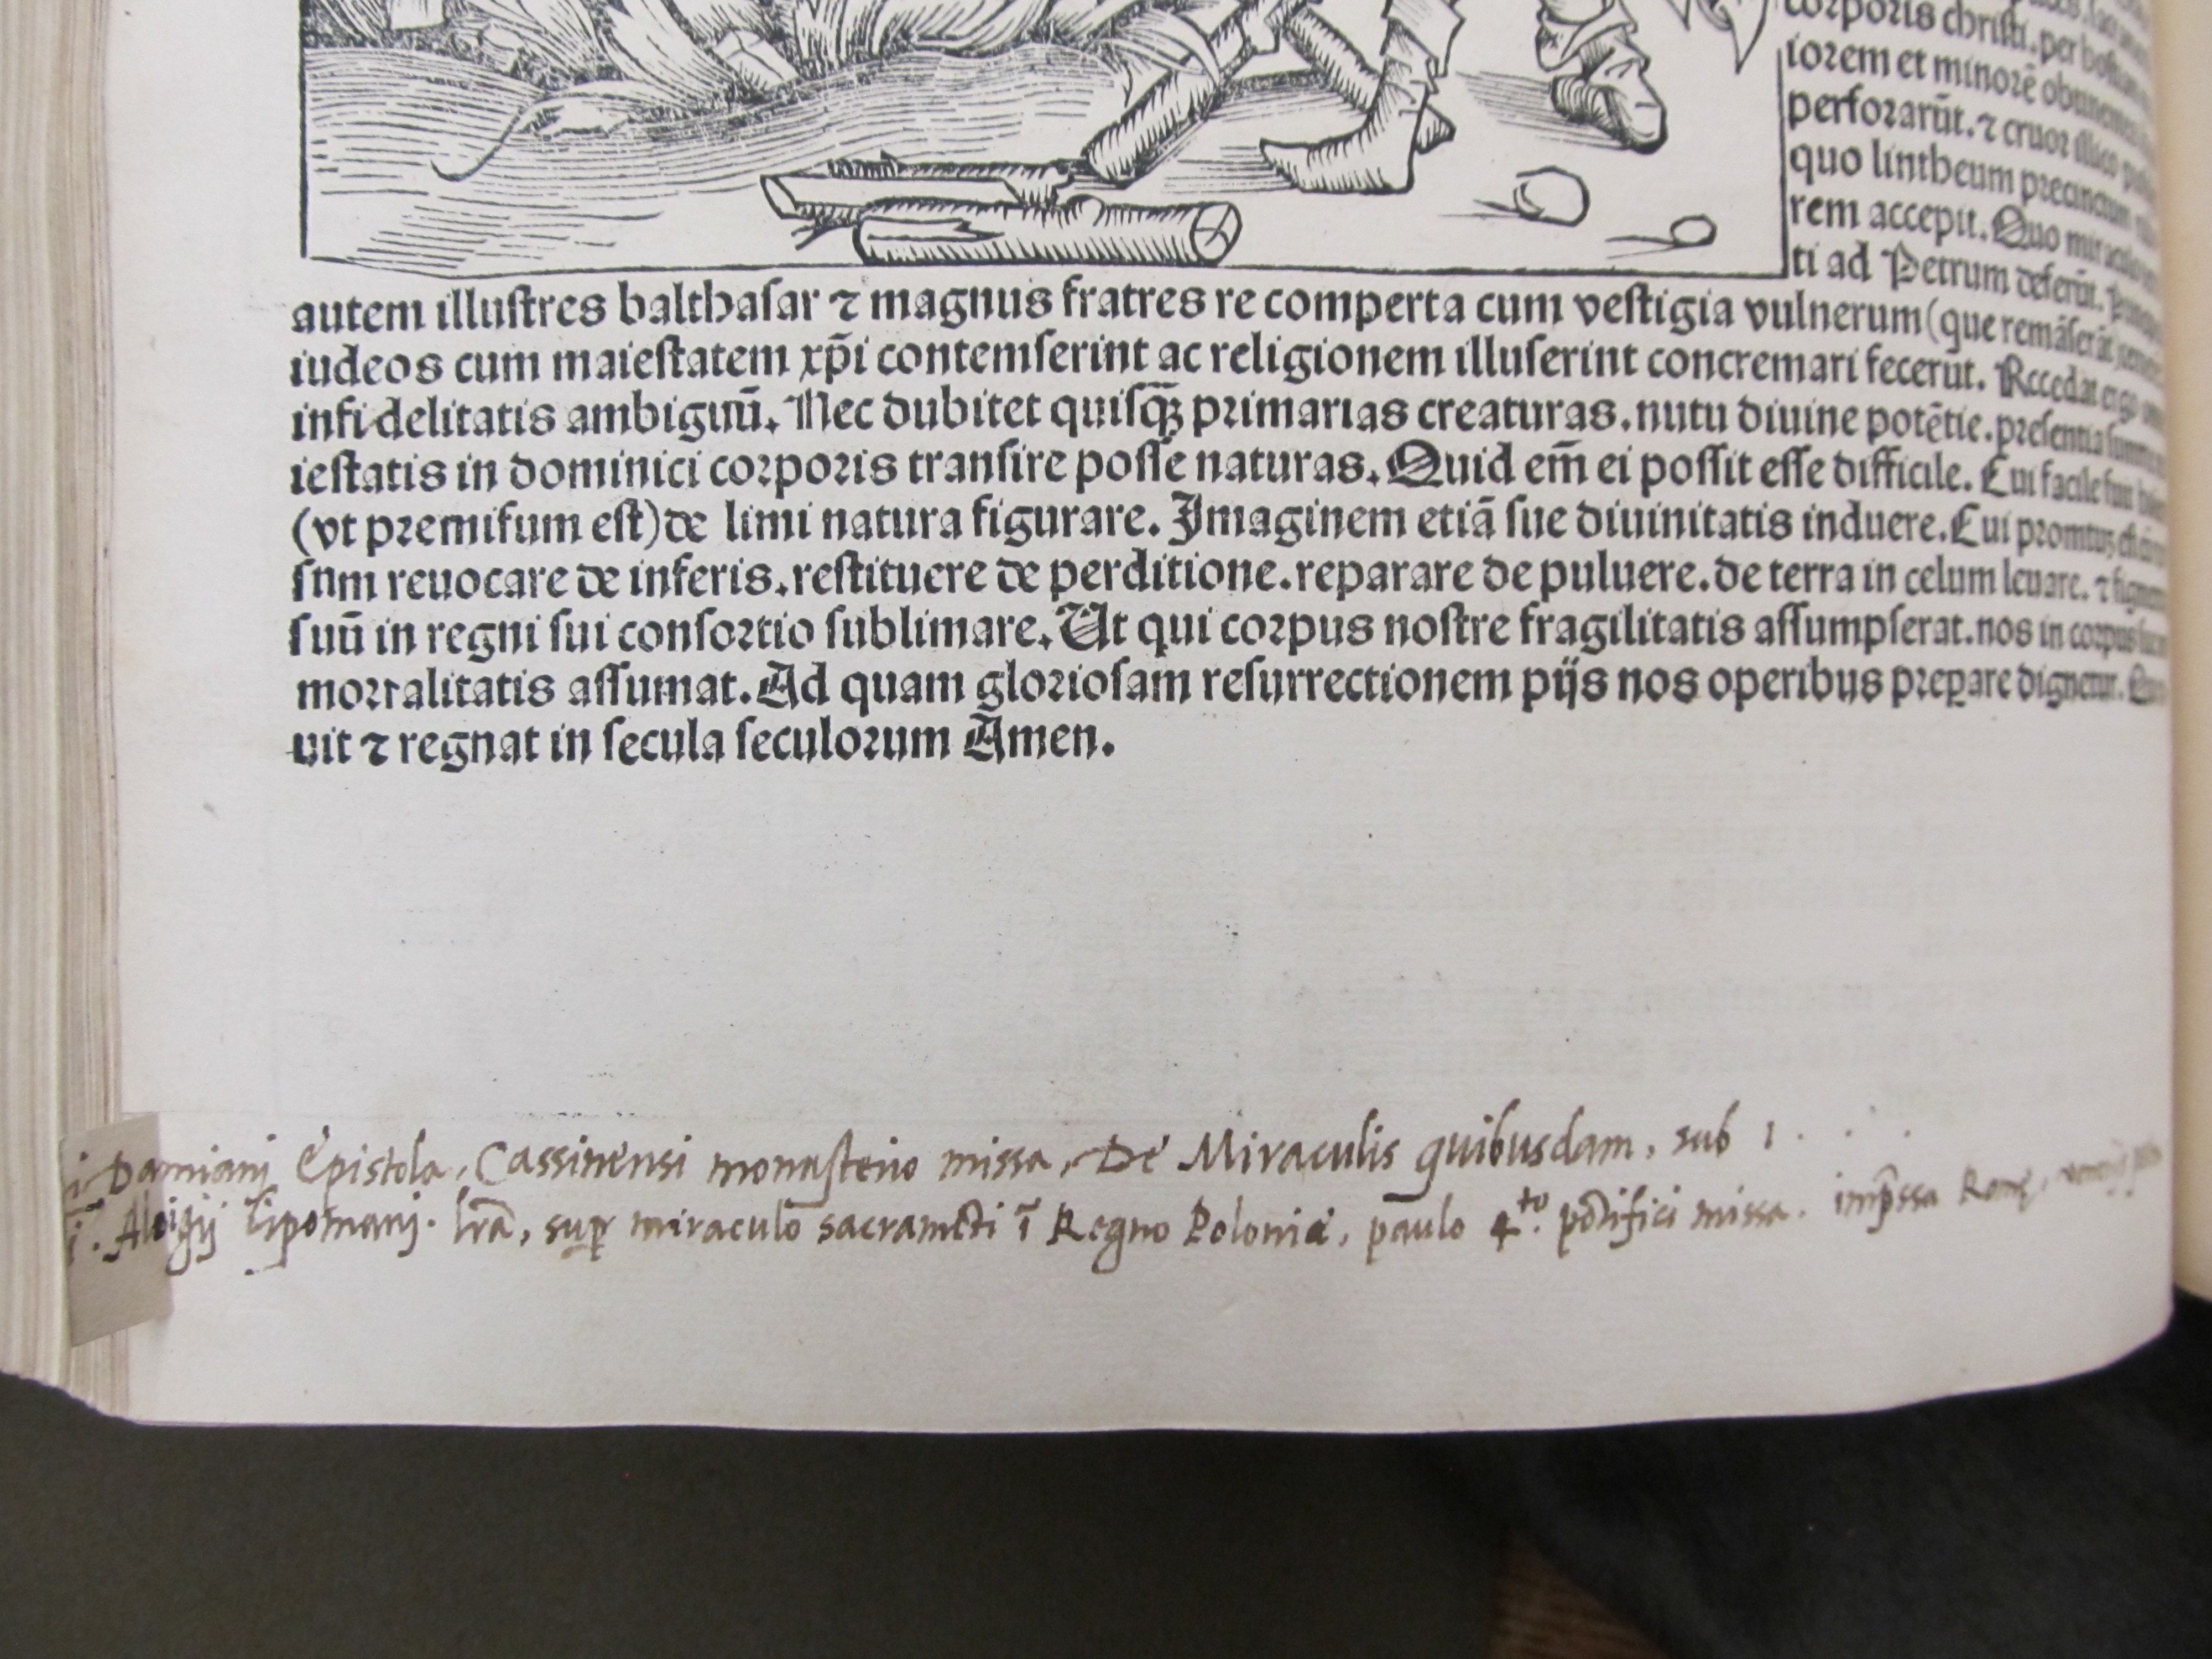 corporis christi. per
iorem et minorẽ
perforarũt. ⁊ cruor illico
quo lintheum precinctum
rem accepit. Quo
ti ad Petrum deferũt.
autem illustres balthasar ⁊ magnus fratres re comperta cum vestigia vulnerum (que remãserãt
iudeos cum maiestatem xp̄i contemserint ac religionem illuserint concremari fecerũt. Accedat ergo
infidelitatis ambiguũ. Nec dubitet quisq̃ꝫ primarias creaturas. nutu diuine potẽtie. presentia
iestatis in dominici corporis transire posse naturas. Quid em̃ ei possit esse difficile. Cui facile
(vt premisum est) de limi natura figurare. Imaginem etiã sue diuinitatis induere. Cui promtuꝫ
sum reuocare de inferis. restituere de perditione. reparare de puluere. de terra in celum leuare. ⁊
suũ in regni sui consortio sublimare. Ut qui corpus nostre fragilitatis assumpserat. nos in corpus
mortalitatis assumat. Ad quam gloriosam resurrectionem pijs nos operibus prepare dignetur.
uit ⁊ regnat in secula seculorum Amen.
Damianj Epistola, Cassinensi monasterio missa, De Miraculis quibusdam, sub
Aloigij Lipomanj. lrã, sup miraculo sacramẽti ĩ Regno Poloniæ, paulo 4to. põtifici missa. imp̃ssa